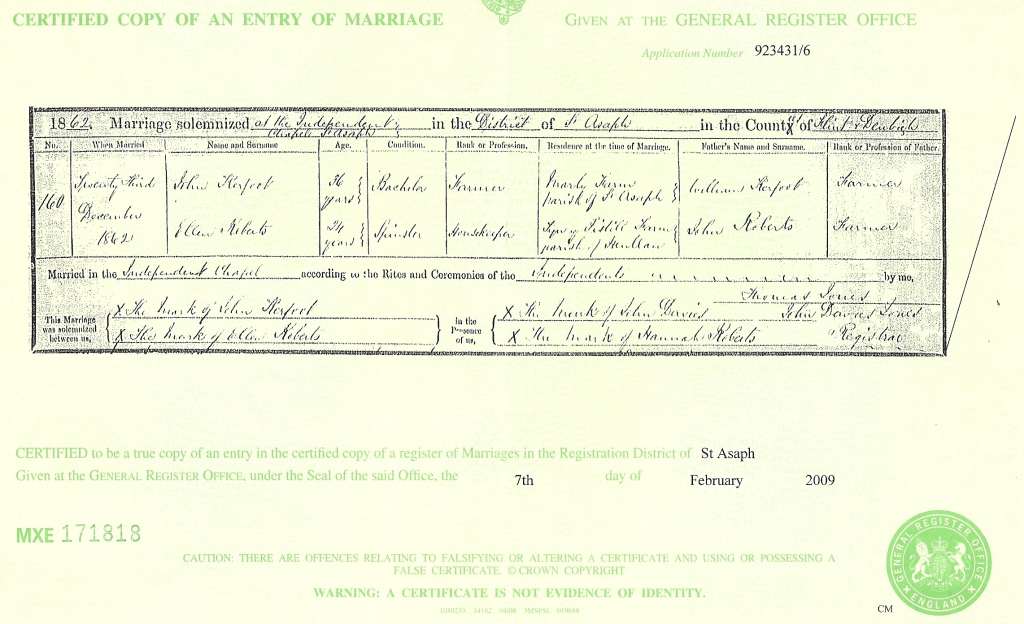 CERTIFIED COPY OF AN ENTRY OF MARRIAGE
GIVEN AT THE GENERAL REGISTER OFFICE
Application Number 923431/6
1862. Marriage solemnized at the Independent Chapel St Asaph in the District of St Asaph in the Counties of Flint & Denbigh
No. When Married Name and Surname Age. Condition. Rank or Profession. Residence at the time of Marriage. Father's Name and Surname. Rank or Profession of Father.
160 Twenty third December 1862 John Kerfoot 36 years Bachelor Farmer Farm parish of St Asaph William Kerfoot Farmer
Ellen Roberts 24 years Spinster Housekeeper Farm parish of Henllan John Roberts Farmer
Married in the Independent Chapel according to the Rites and Ceremonies of the Independents by me,
Thomas Jones
This Marriage was solemnized between us, X The mark of John Kerfoot In the Presence of us, X The mark of John Davies John Davies Jones
X The mark of Ellen Roberts X The mark of Hannah Roberts Registrar
CERTIFIED to be a true copy of an entry in the certified copy of a register of Marriages in the Registration District of St Asaph
Given at the GENERAL REGISTER OFFICE, under the Seal of the said Office, the 7th day of February 2009
MXE 171818
CAUTION: THERE ARE OFFENCES RELATING TO FALSIFYING OR ALTERING A CERTIFICATE AND USING OR POSSESSING A
FALSE CERTIFICATE. © CROWN COPYRIGHT
WARNING: A CERTIFICATE IS NOT EVIDENCE OF IDENTITY.
GENERAL REGISTER OFFICE
ENGLAND
CM